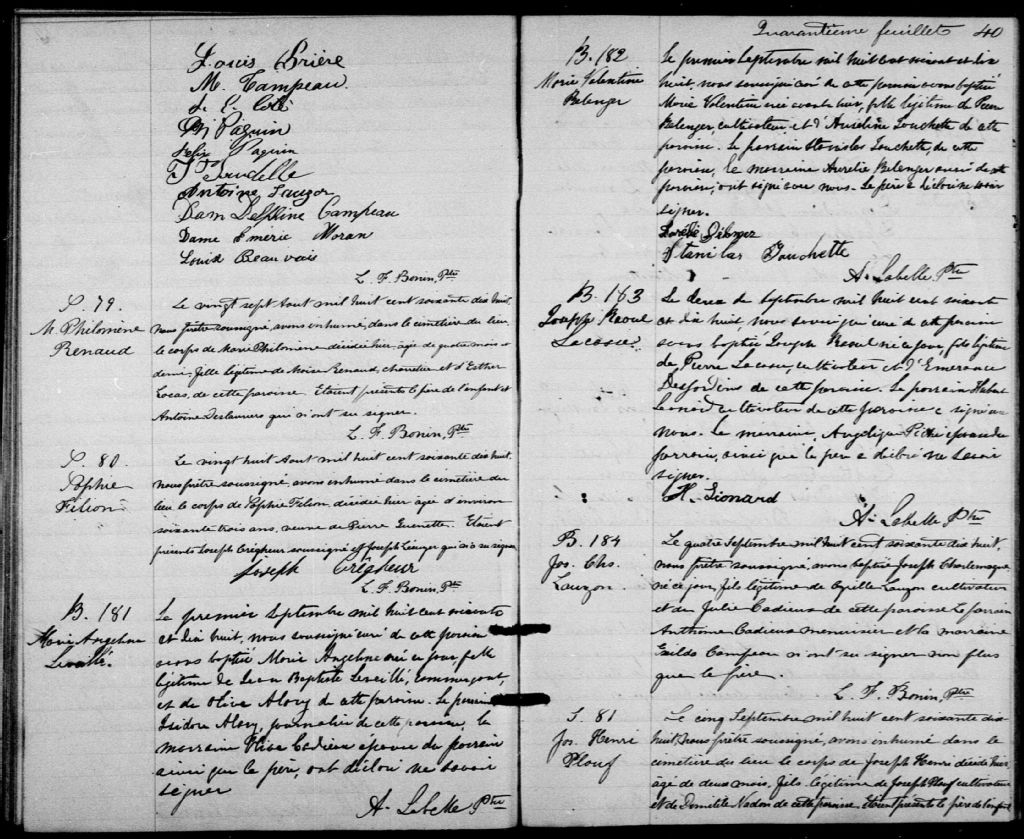 Louis Brière
M. Campeau
Paquin
Felix Paquin
Antoine Lauzon
Dam Delphine Campeau
Dame Emérie Moran
Louis Beauvais
L. F. Bonin, Ptre
S. 79.
M. Philomène
Renaud
Le vingt sept Aout mil huit cent soixante dix huit,
nous prêtre soussigné, avons inhumé, dans le cimetière du lieu,
le corps de Marie Philomène décédée hier, agée de quatre mois et
demi, fille légitime de Moïse Renaud, charretier et d'Esther
Locas, de cette paroisse. Etaient présents le père de l'enfant et
Antoine Deslauriers qui n'ont su signer.
L. F. Bonin, Ptre
S. 80
Sophie
Filion
Le vingt huit Aout mil huit cent soixante dix huit,
nous prêtre soussigné, avons inhumé dans le cimetière du
lieu le corps de Sophie Filion, décédée hier âgée d'environ
soixante trois ans, veuve de Pierre Guenette. Etaient
présents Joseph Crégheur soussigné et Joseph qui n'a su signer
Joseph Crégheur
L. F. Bonin, Ptre
B. 181
Marie Angeline
Leveillé.
Le premier Septembre mil huit cent soixante
et dix huit, nous soussigné curé de cette paroisse
avons baptisé Marie Angeline née ce jour, fille
légitime de Jean Baptiste Leveillé, commerçant,
et de Olive Alory de cette paroisse. Le parrain
Isidore Alory, journalier de cette paroisse, la
marraine Cadieux épouse du parrain
ainsi que le père, ont déclaré ne savoir
signer
A. Labelle Ptre
Quarantième feuillet 40
B. 182
Marie Valentine
Belanger
Le premier Septembre mil huit cent soixante et dix
huit, nous soussigné curé de cette paroisse avons baptisé
Marie Valentine née avant hier, fille légitime de Pierre
Belanger, cultivateur, et d' Touchette de cette
paroisse. Le parrain Stanislas Touchette, de cette
paroisse, la marraine Aurelie Belanger aussi de cette
paroisse, ont signé avec nous. Le père a déclaré ne savoir
signer.
Stanislas Touchette
A. Labelle Ptre
B. 183
Joseph Raoul
Lacasse
Le deux de Septembre mil huit cent soixante
et dix huit, nous soussigné curé de cette paroisse
avons baptisé Joseph Raoul né ce jour, fils légitime
de Pierre Lacasse, cultivateur et d'Emerance
Desjardins de cette paroisse. Le parrain Hubert
Leonard cultivateur de cette paroisse a signé avec
nous. La marraine, Angelique épouse du
parrain, ainsi que le père a déclaré ne savoir
signer.
H. Lionard
A. Labelle Ptre
B. 184
Jos. Chs.
Lauzon
Le quatre Septembre mil huit cent soixante dix huit,
nous prêtre soussigné, avons baptisé Joseph Charlemagne
né ce jour, fils légitime de Cyrille Lauzon cultivateur
et de Julie Cadieux de cette paroisse. Le parrain
Anthime Cadieux menuisier et la marraine
Exilda Campeau n'ont su signer non plus
que le père.
L. F. Bonin, Ptre
S. 81
Jos. Henri
Plouf
Le cinq Septembre mil huit cent soixante dix
huit, nous prêtre soussigné, avons inhumé dans le
cimetière du lieu le corps de Joseph Henri décédé hier,
âgé de deux mois, fils légitime de Joseph Plouf cultivateur
et de Domitilde Nadon de cette paroisse. Etaient présents le père de l'enfant